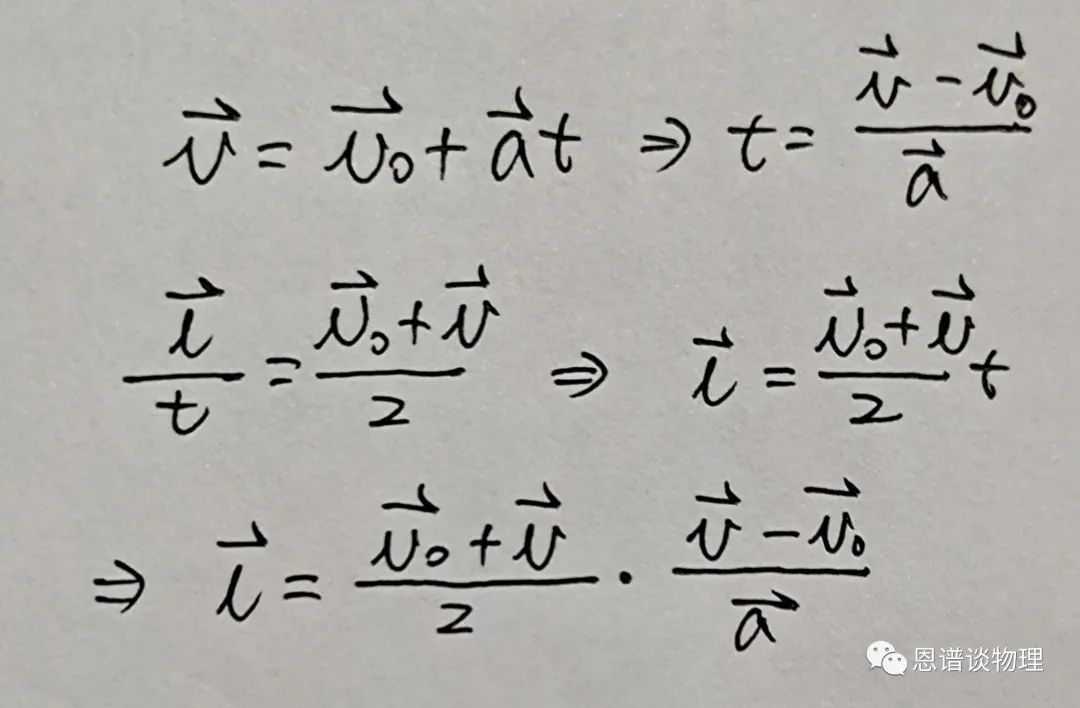 $\vec{v} = \vec{v_0} + \vec{a}t \Rightarrow t = \frac{\vec{v} - \vec{v_0}}{\vec{a}}$
$\frac{\vec{l}}{t} = \frac{\vec{v}_0 + \vec{v}}{2} \Rightarrow \vec{l} = \frac{\vec{v}_0 + \vec{v}}{2} t$
$\Rightarrow \vec{l} = \frac{\vec{v_0} + \vec{v}}{2} \cdot \frac{\vec{v} - \vec{v_0}}{\vec{a}}$
恩谱谈物理